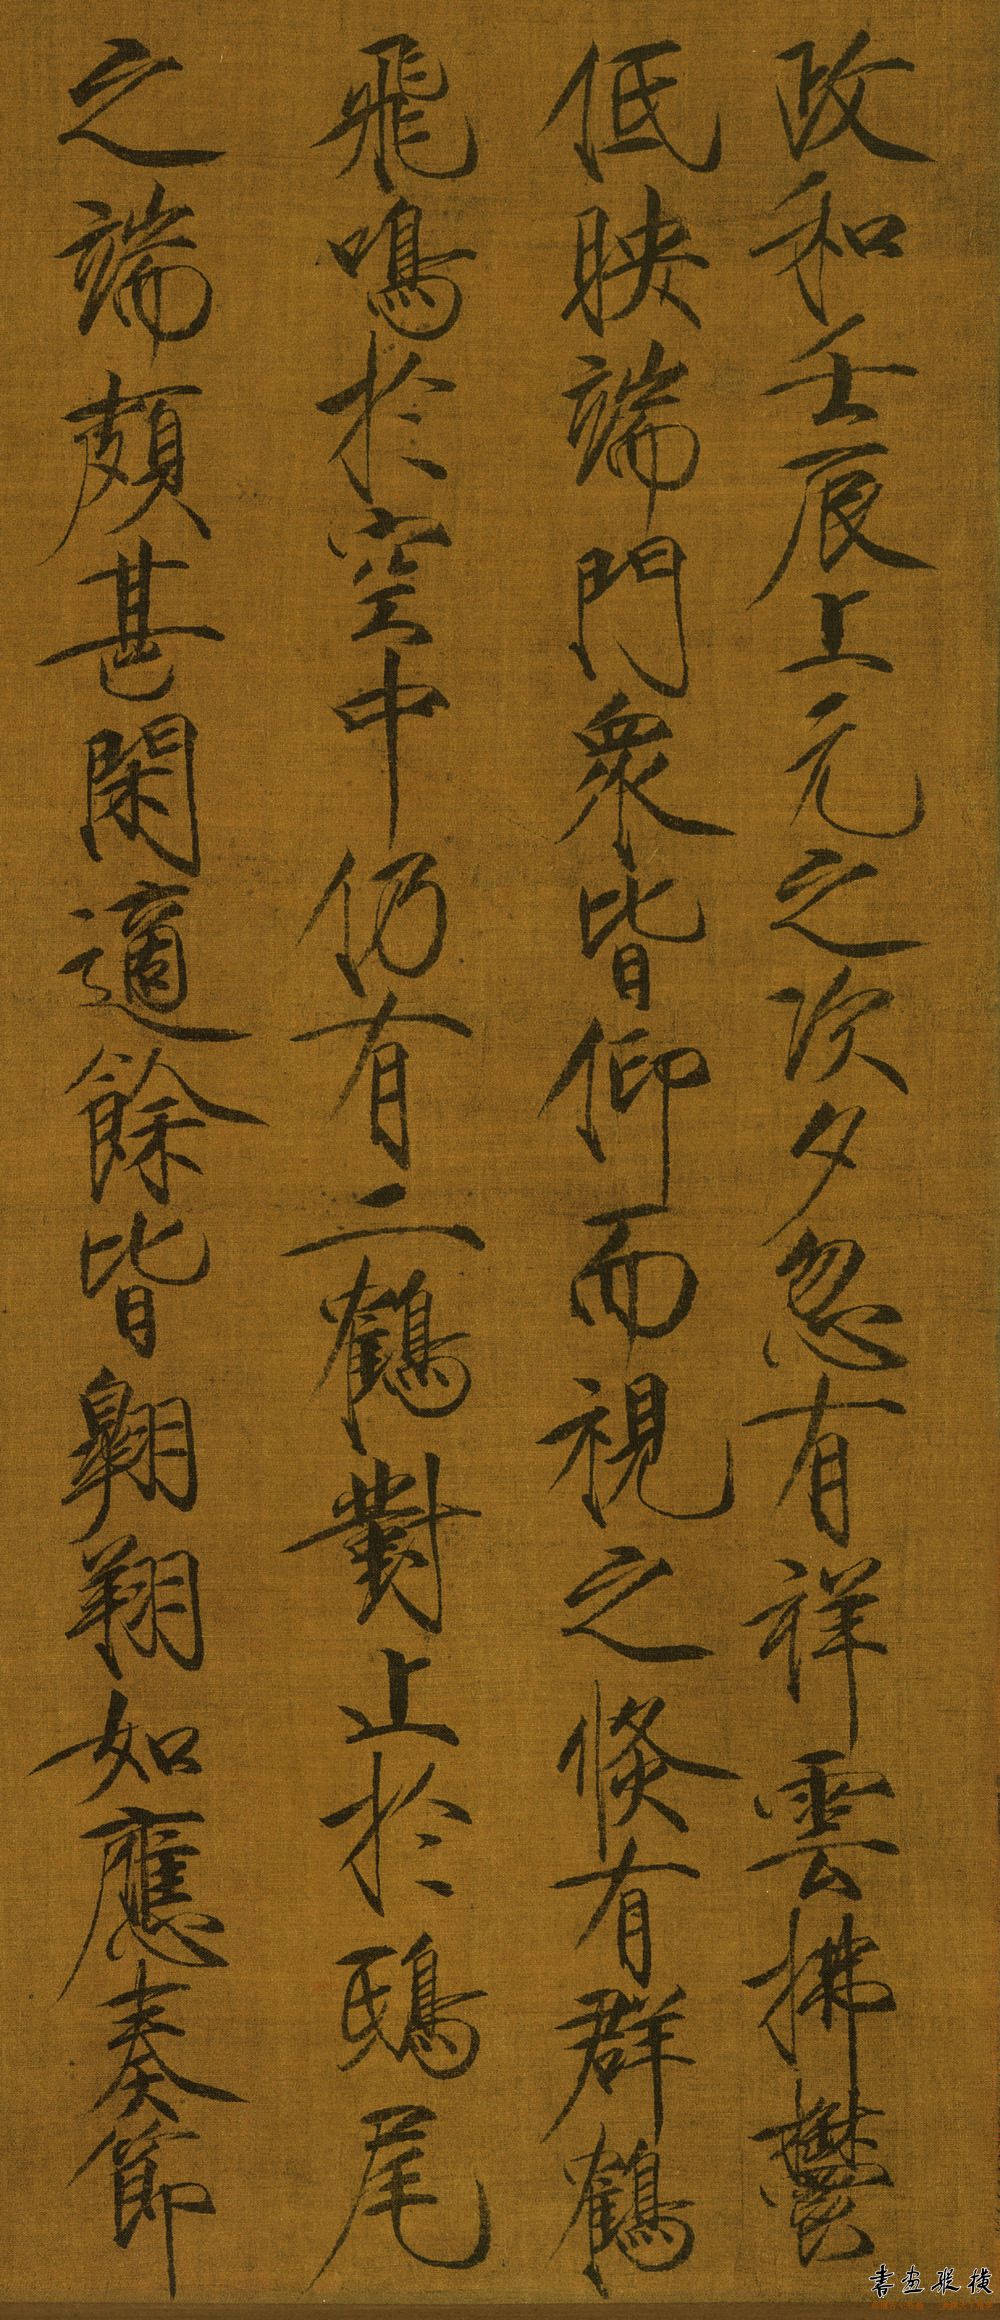 政和壬辰上元之次夕忽有祥雲拂鬱
低映端門衆皆仰而視之倐有群鶴
飛鳴於空中仍有二鶴對止於鴟尾
之端頗甚閑適餘皆翱翔如應奏節
書畫縱橫